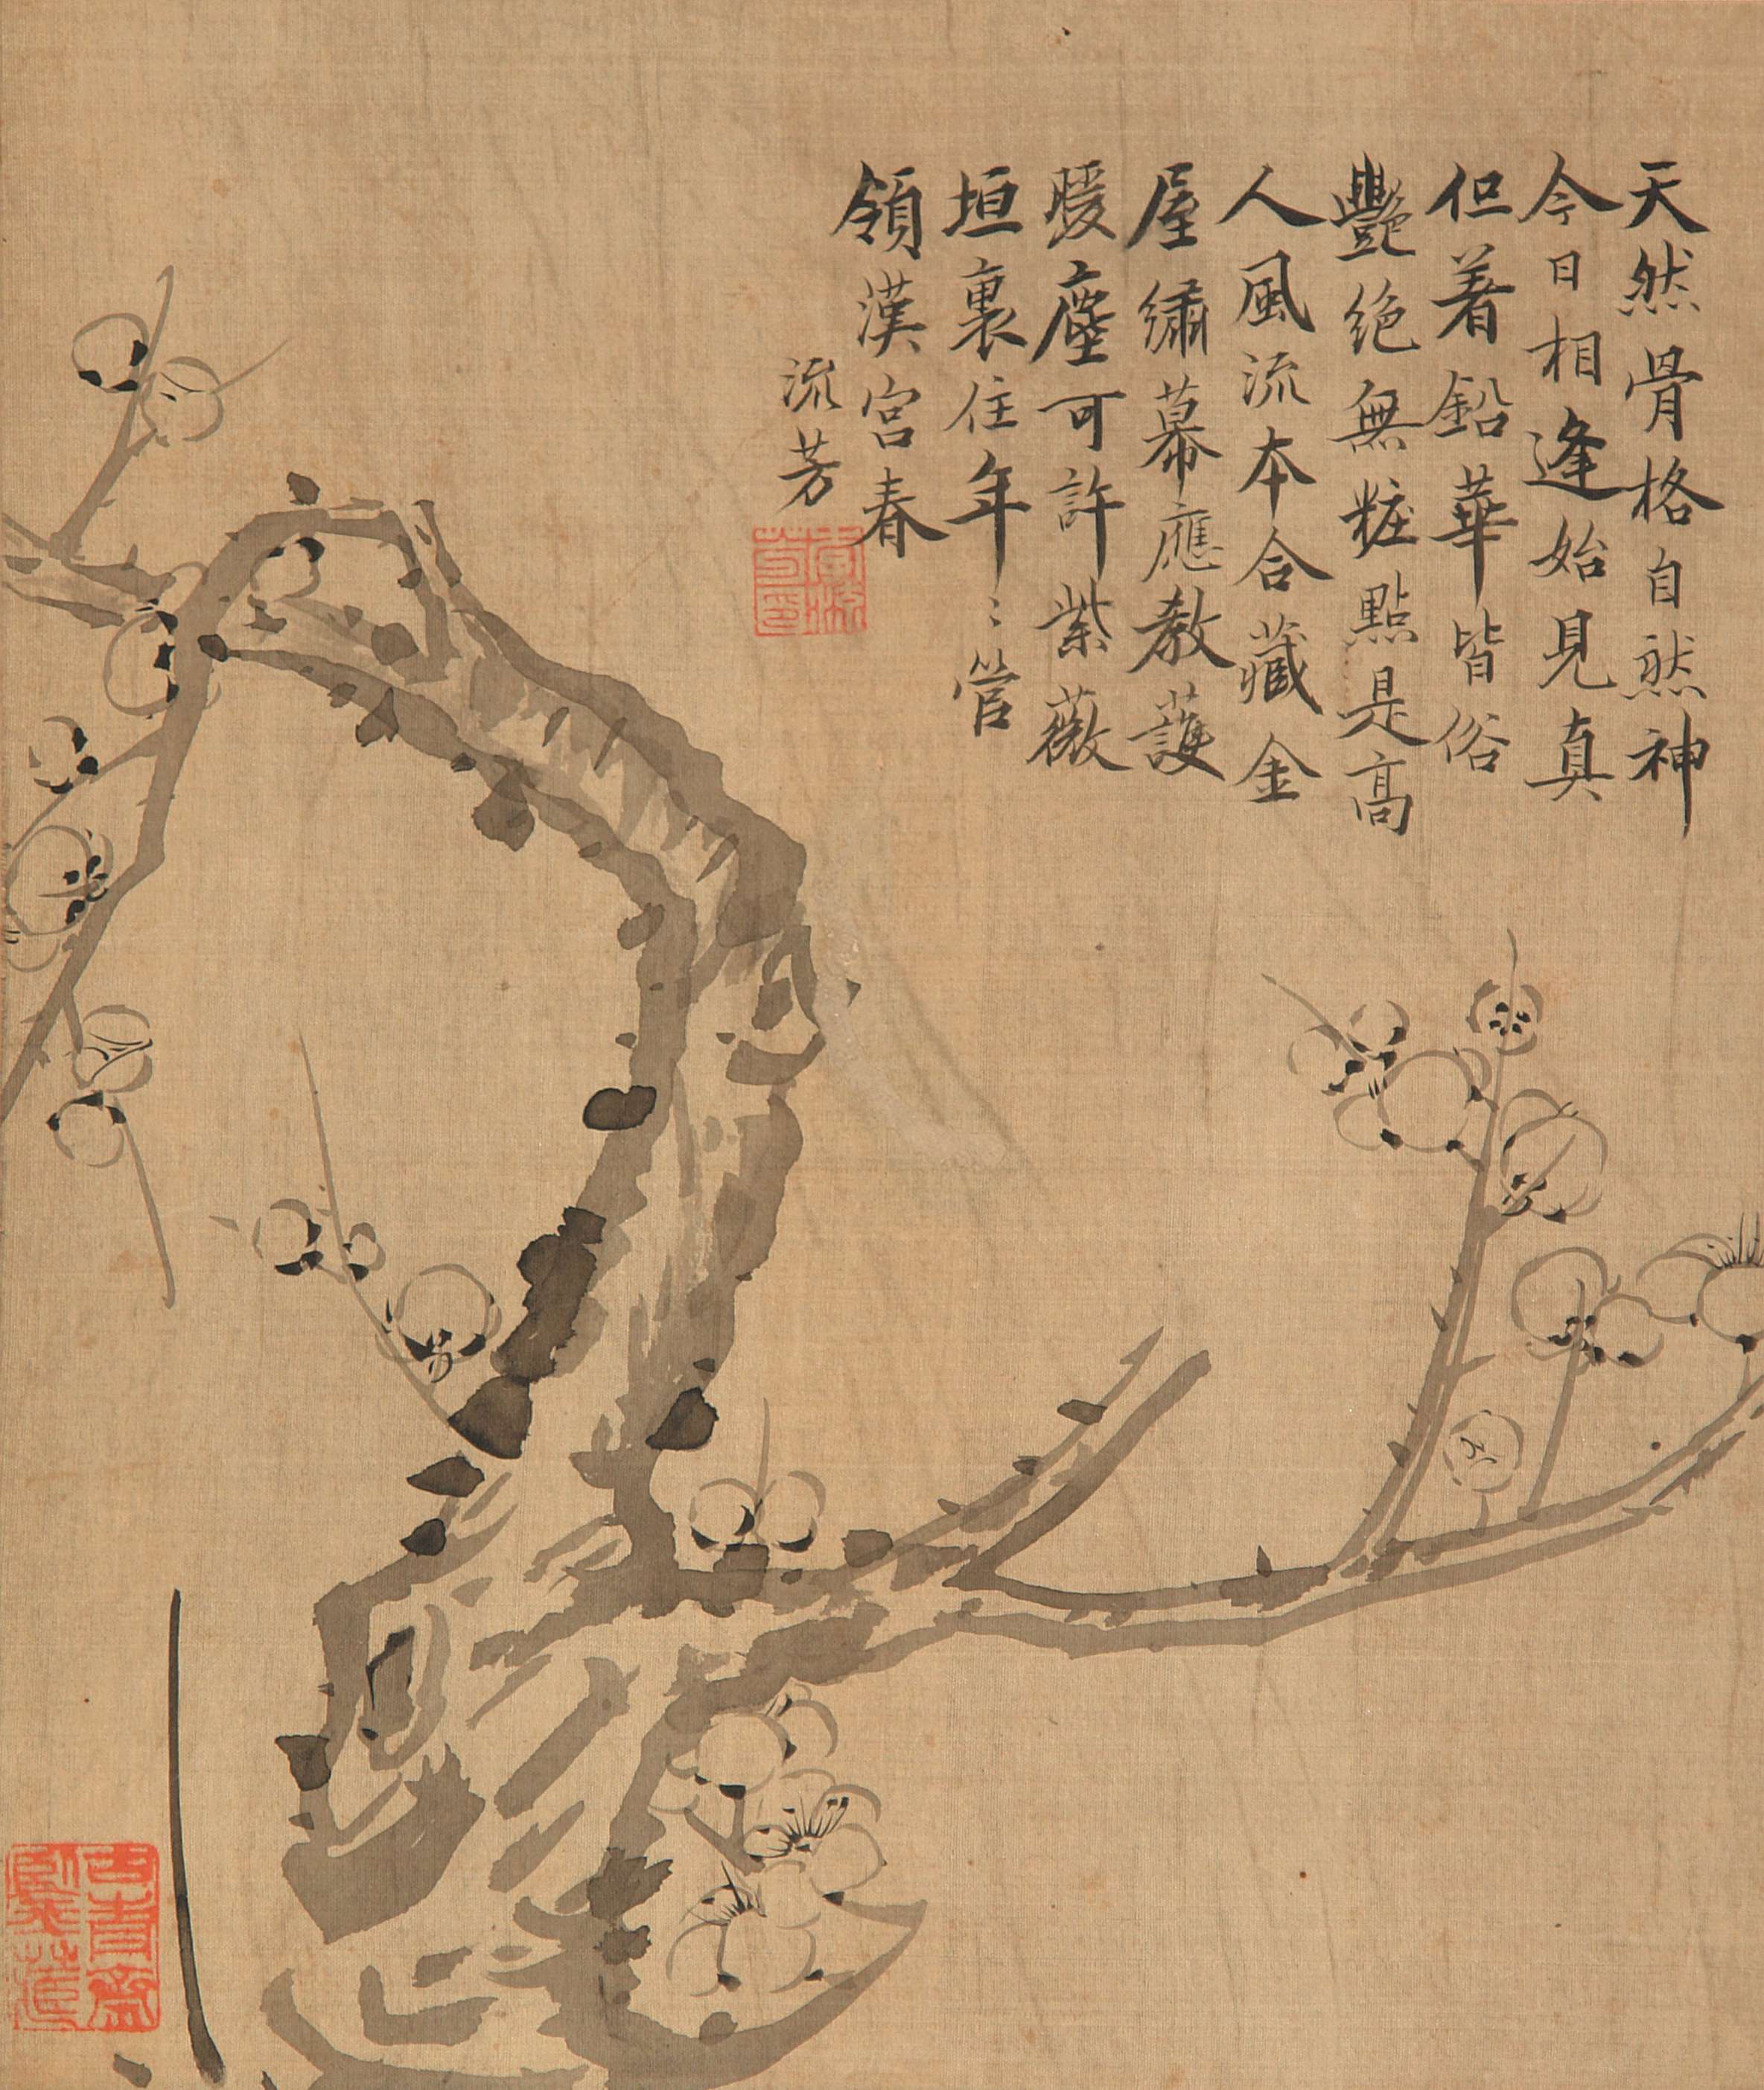 天然骨格自然神
今日相逢始見真
但着鉛華皆俗
豔絶無粧點是高
人風流本合藏金
屋繡幕應教護
暖塵可許紫薇
垣裏住年〻管
領漢宮春
流芳